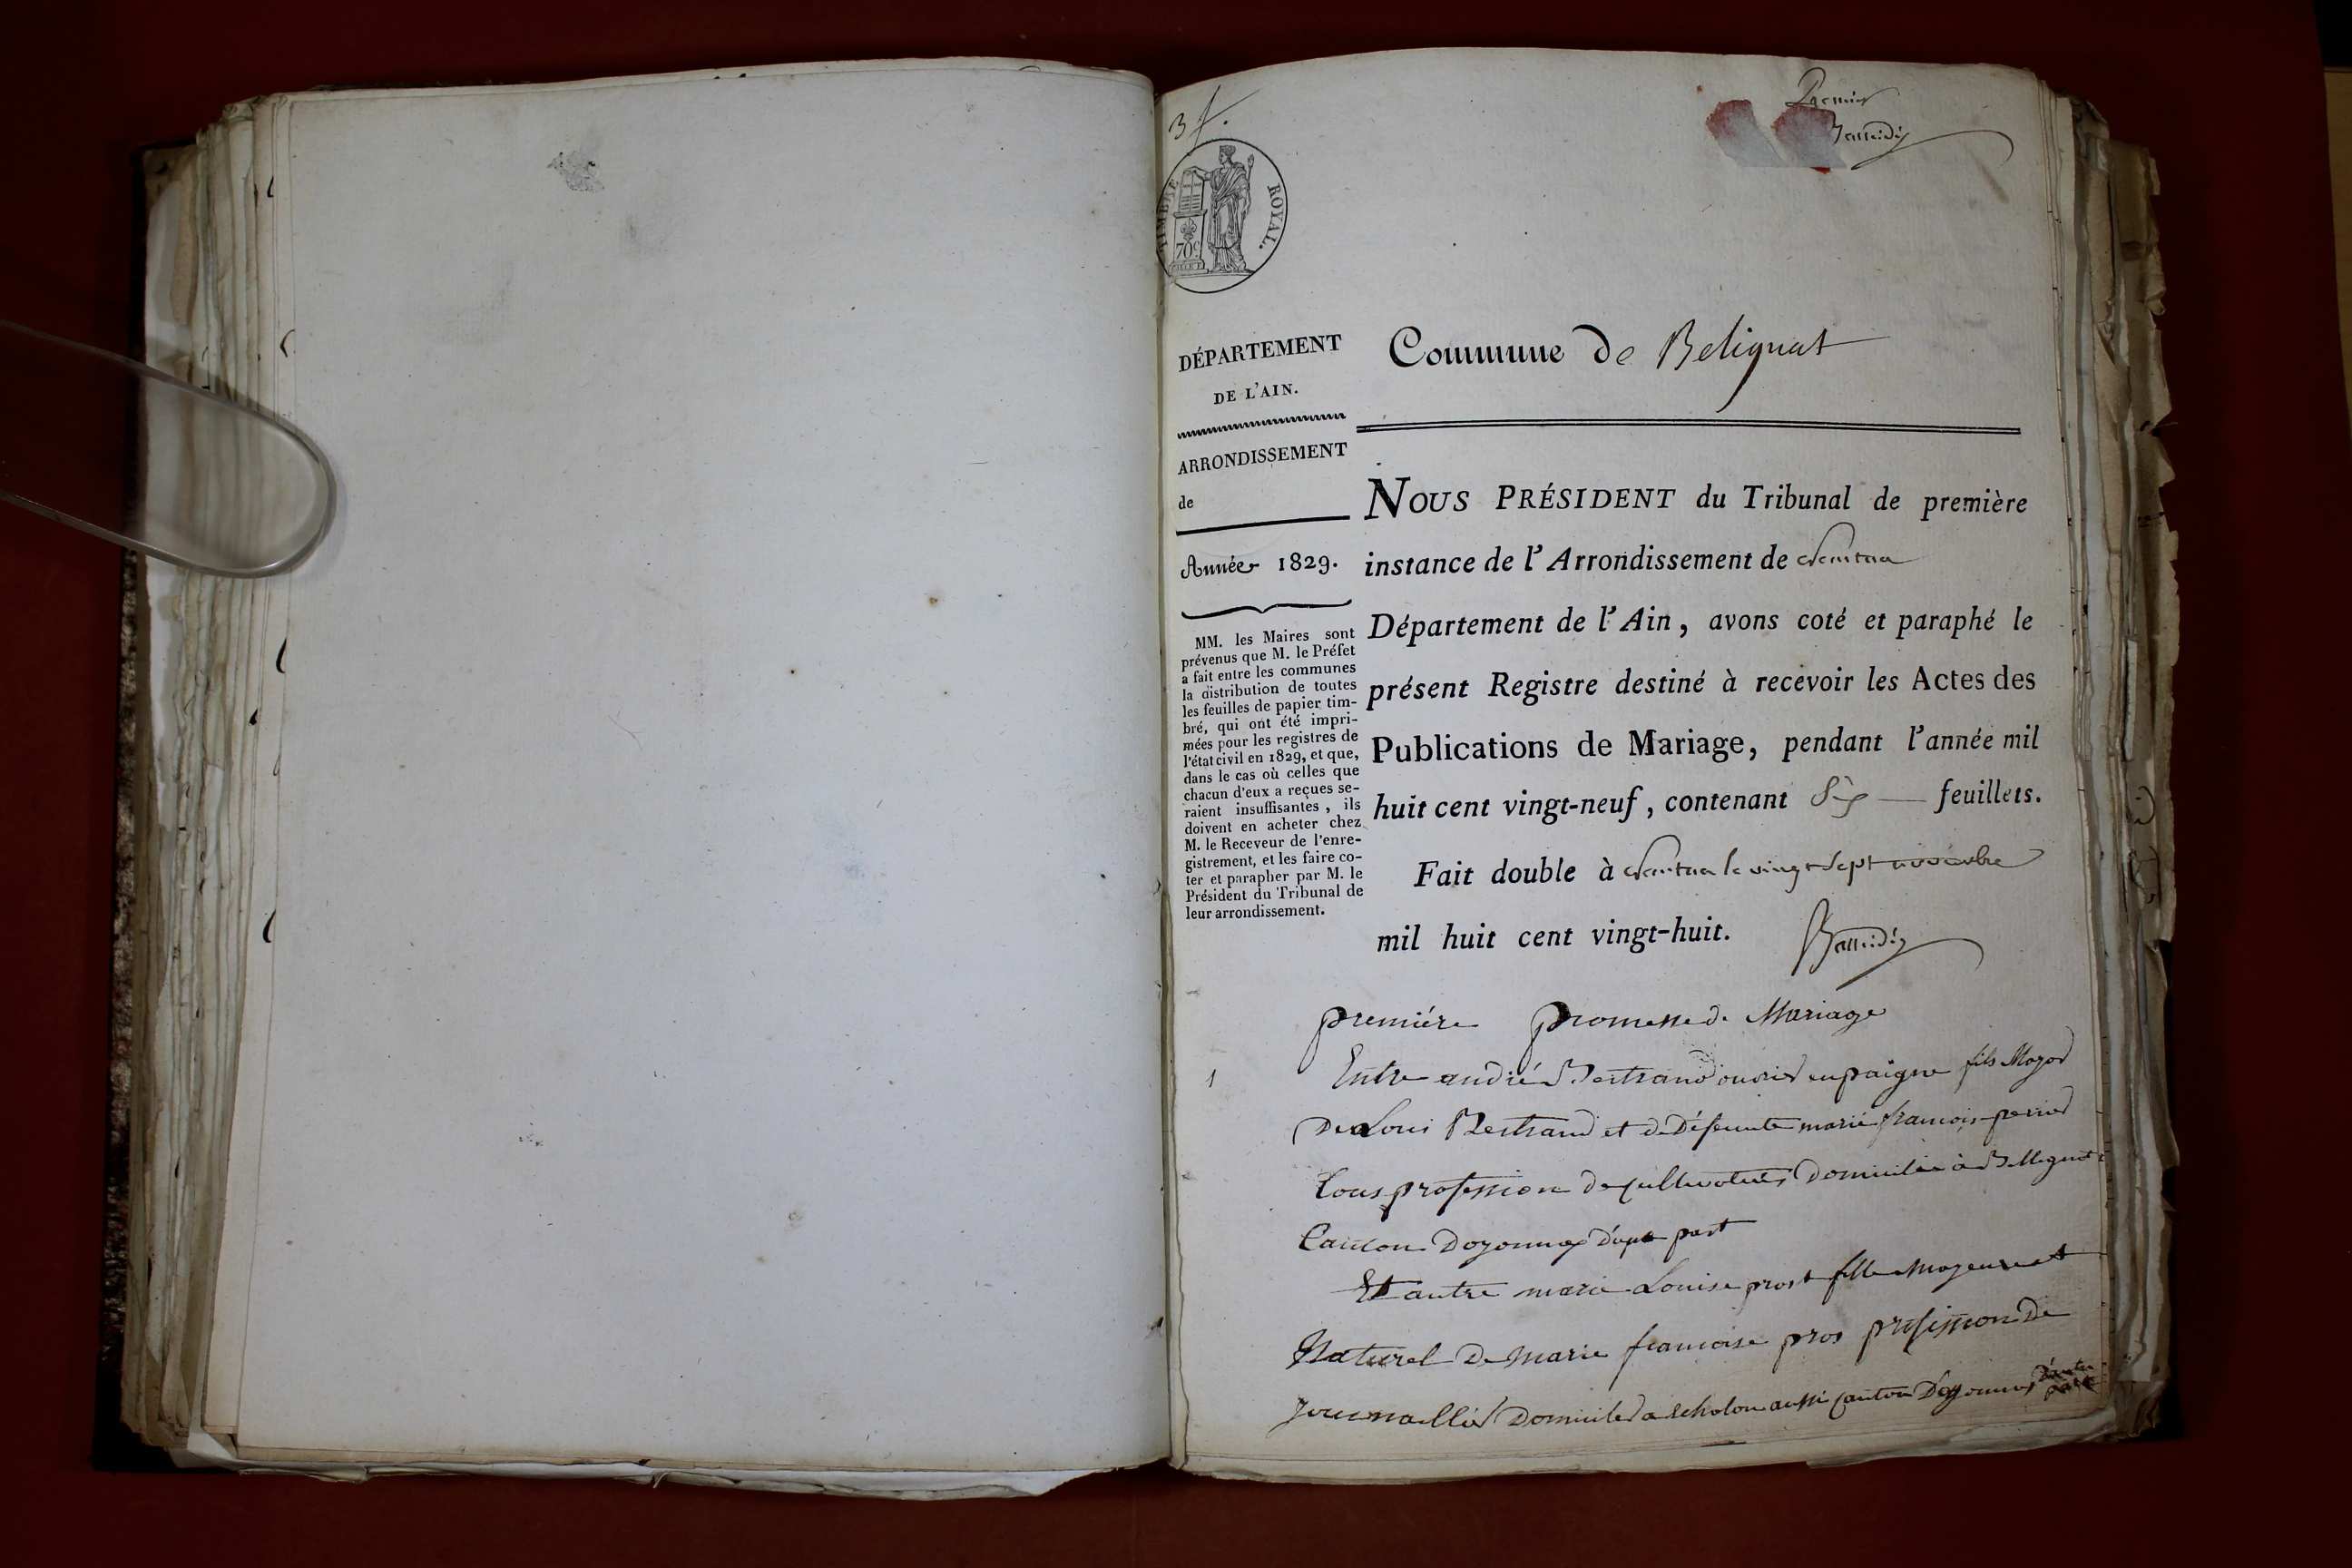 3 f.
Premier
TIMBRE ROYAL.
70c
Commune de Belignat
DÉPARTEMENT
DE L'AIN.
ARRONDISSEMENT
de
Année 1829.
MM. les Maires sont
prévenus que M. le Préfet
a fait entre les communes
la distribution de toutes
les feuilles de papier tim-
bré, qui ont été impri-
mées pour les registres de
l'état civil en 1829, et que,
dans le cas où celles que
chacun d'eux a reçues se-
raient insuffisantes, ils
doivent en acheter chez
M. le Receveur de l'enre-
gistrement, et les faire co-
ter et parapher par M. le
Président du Tribunal de
leur arrondissement.
NOUS PRÉSIDENT du Tribunal de première
instance de l'Arrondissement de Nantua
Département de l'Ain, avons coté et paraphé le
présent Registre destiné à recevoir les Actes des
Publications de Mariage, pendant l'année mil
huit cent vingt-neuf, contenant Six feuillets.
Fait double à Nantua le vingt Sept novembre
mil huit cent vingt-huit.
première promesse de Mariage
1
Entre andré Bertrand ouvrier en paigne fils Mayor
De Loui Bertrand et de Défeunte marie francois perrier
tous profession de cullivateur Domicilié à Bellignat
Canton Doyonnax d'une part
Et autre marie Louise prost fille Mayeure et
Naturel De Marie francoise pros profission De
Journallier Domicilie a Echolon aussi canton D'oyonnax D'autre
part